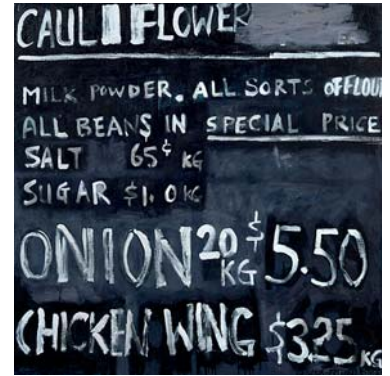 CAULIFLOWER
MILK POWDER. ALL SORTS OF FLOU
ALL BEANS IN SPECIAL PRICE
SALT 65¢ KG
SUGAR $1.0 KG
ONION 20 KG $5.50
CHICKEN WING $3.25 KG